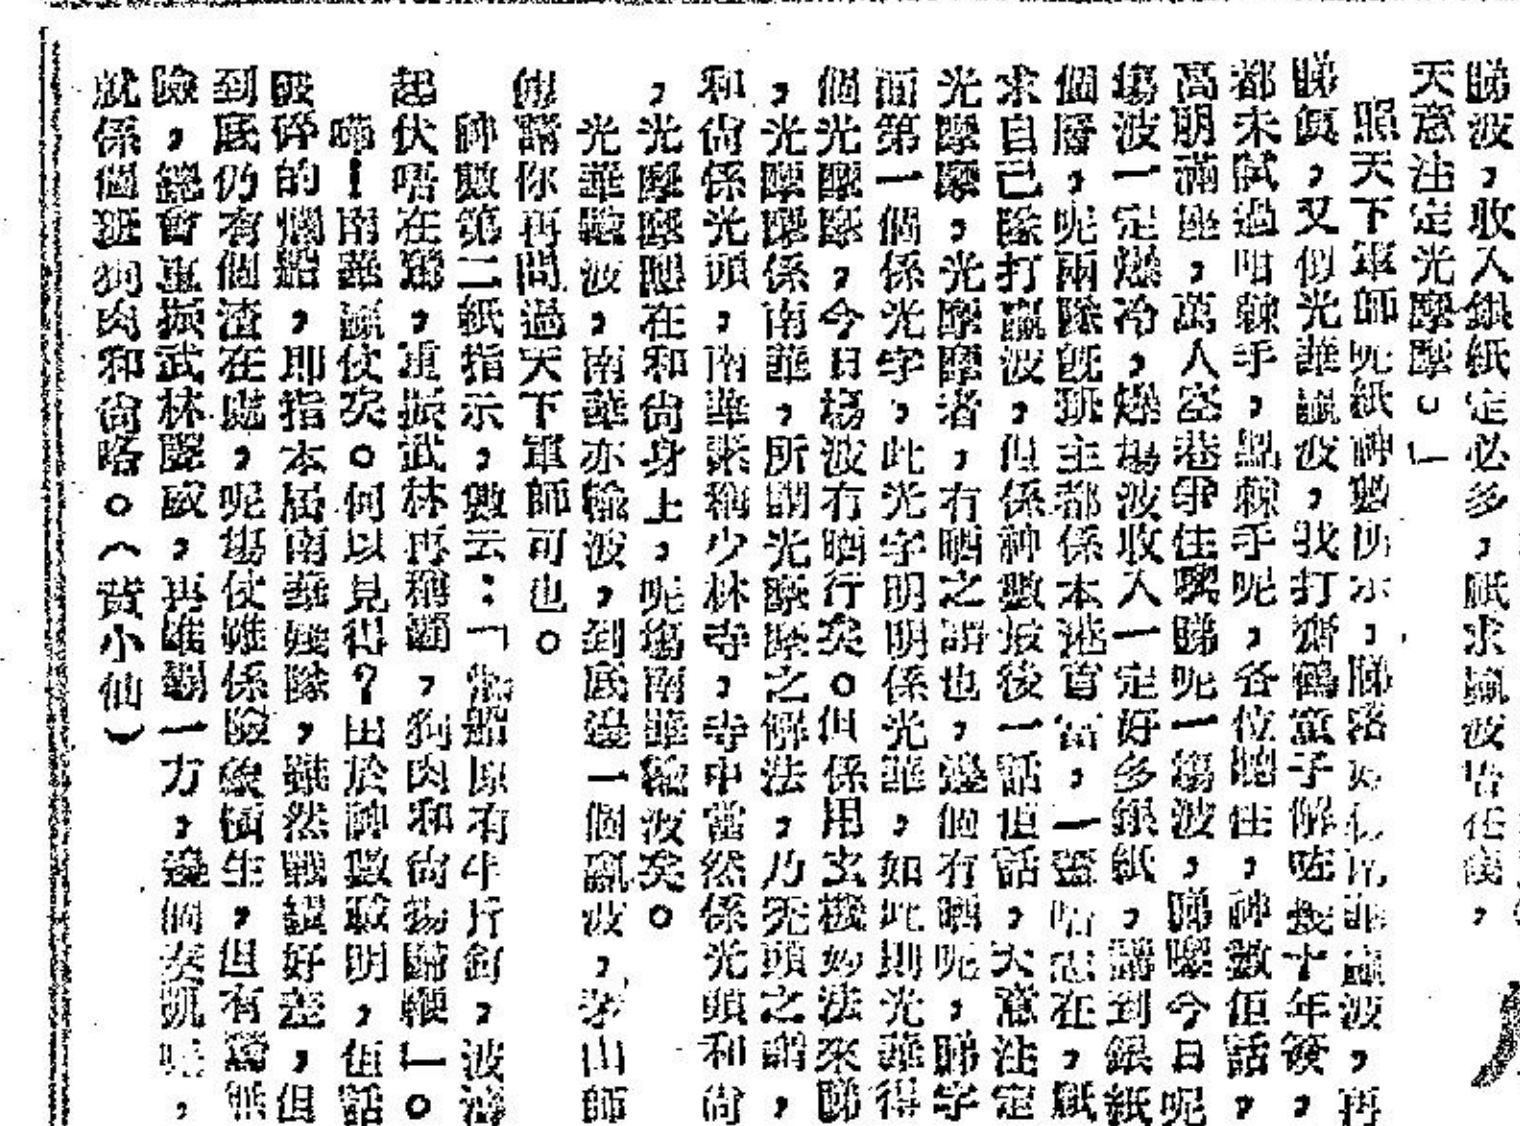 睇波，收入銀紙定必多，祇求贏波唔任錢，
天意注定光摩摩。」
照天下軍師呢紙神數所示，睇落好似南華贏波，再
睇眞，又似光華贏波，我打齋鶴童子解咗幾十年簽，
都未試過咁棘手，點棘手呢，各位聽住，神數佢話，
高朋滿座，萬人空巷爭住嚟睇呢一塲波，睇嚟今日呢
塲波一定爆冷，爆塲波收入一定好多銀紙，講到銀紙
個層，呢兩隊旣班主都係本港首富，一盞唔志在，祇
求自己隊打贏波，但係神數最後一話佢話，天意注定
光摩摩，光摩摩者，有晒之謂也，邊個有晒呢，睇字
面第一個係光字，此光字明明係光華，如此則光華得
個光摩摩，今日塲波冇晒行矣。但係用玄機妙法來睇
，光摩摩係南華，所謂光摩摩之解法，乃禿頭之謂，
和尙係光頭，南華素稱少林寺，寺中當然係光頭和尙
，光摩摩應在和尙身上，呢塲南華輸波矣。
光華贏波，南華亦輸波，到底邊一個贏波，茅山師
傅請你再問過天下軍師可也。
神數第二紙指示，數云：「爛船原有半斤釘，波濤
起伏唔在驚，重振武林再稱霸，狗肉和尙揚鷹鞭」。
嘩！南華贏仗矣。何以見得？由於神數載明，佢話
破碎的爛船，卽指本屆南華殘隊，雖然戰績好差，但
到底仍有個渣在處，呢塲仗雖係險象橫生，但有驚無
險，終會重振武林聲威，再雄霸一方，邊個奏凱呢，
就係個班狗肉和尙咯。（黃小仙）